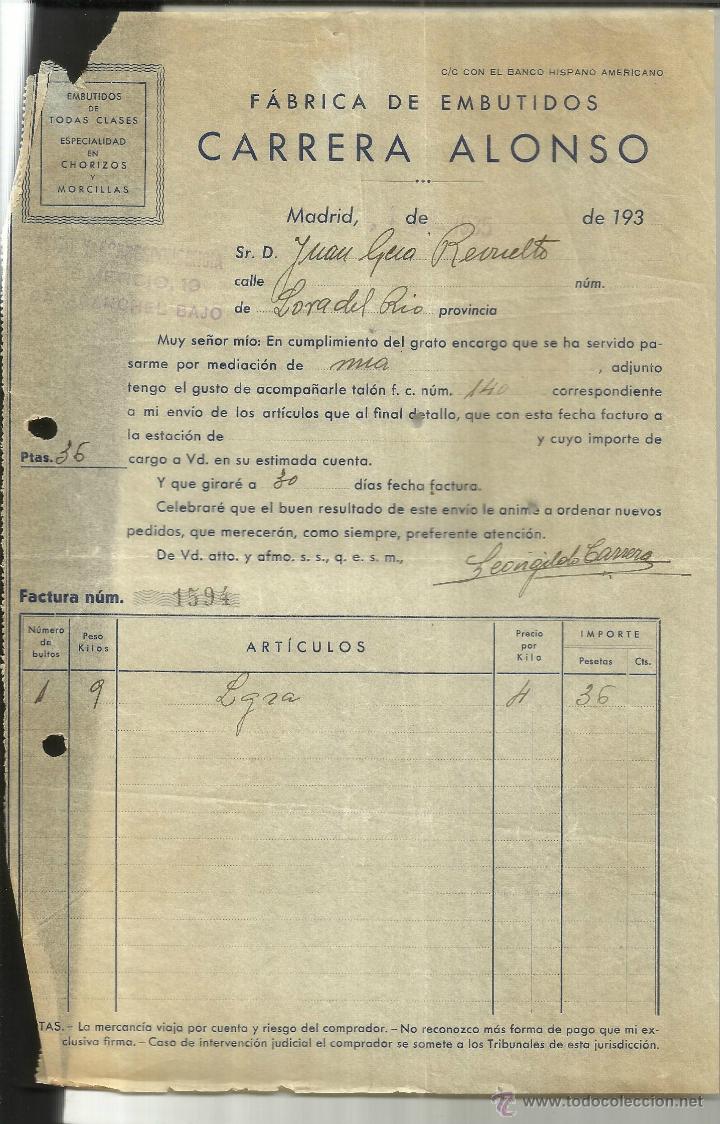 C/C CON EL BANCO HISPANO AMERICANO
EMBUTIDOS
DE
TODAS CLASES
ESPECIALIDAD
EN
CHORIZOS
Y
MORCILLAS
FÁBRICA DE EMBUTIDOS
CARRERA ALONSO
Madrid, de de 193
Sr. D. Juan Gcia Revuelto
calle núm.
10
BAJO
de Lora del Rio provincia
Muy señor mío: En cumplimiento del grato encargo que se ha servido pa-
sarme por mediación de mia , adjunto
tengo el gusto de acompañarle talón f. c. núm. 140 correspondiente
a mi envío de los artículos que al final detallo, que con esta fecha facturo a
la estación de y cuyo importe de
Ptas. 36 cargo a Vd. en su estimada cuenta.
Y que giraré a 30 días fecha factura.
Celebraré que el buen resultado de este envío le anime a ordenar nuevos
pedidos, que merecerán, como siempre, preferente atención.
De Vd. atto. y afmo. s. s., q. e. s. m.,
Leovigildo Carrera
Factura núm. 1594
Número de bultos Peso Kilos ARTÍCULOS Precio por Kilo IMPORTE
Pesetas Cts.
1 9 Lgza 4 36
TAS.- La mercancía viaja por cuenta y riesgo del comprador. - No reconozco más forma de pago que mi ex-
clusiva firma. - Caso de intervención judicial el comprador se somete a los Tribunales de esta jurisdicción.
www.todocoleccion.net